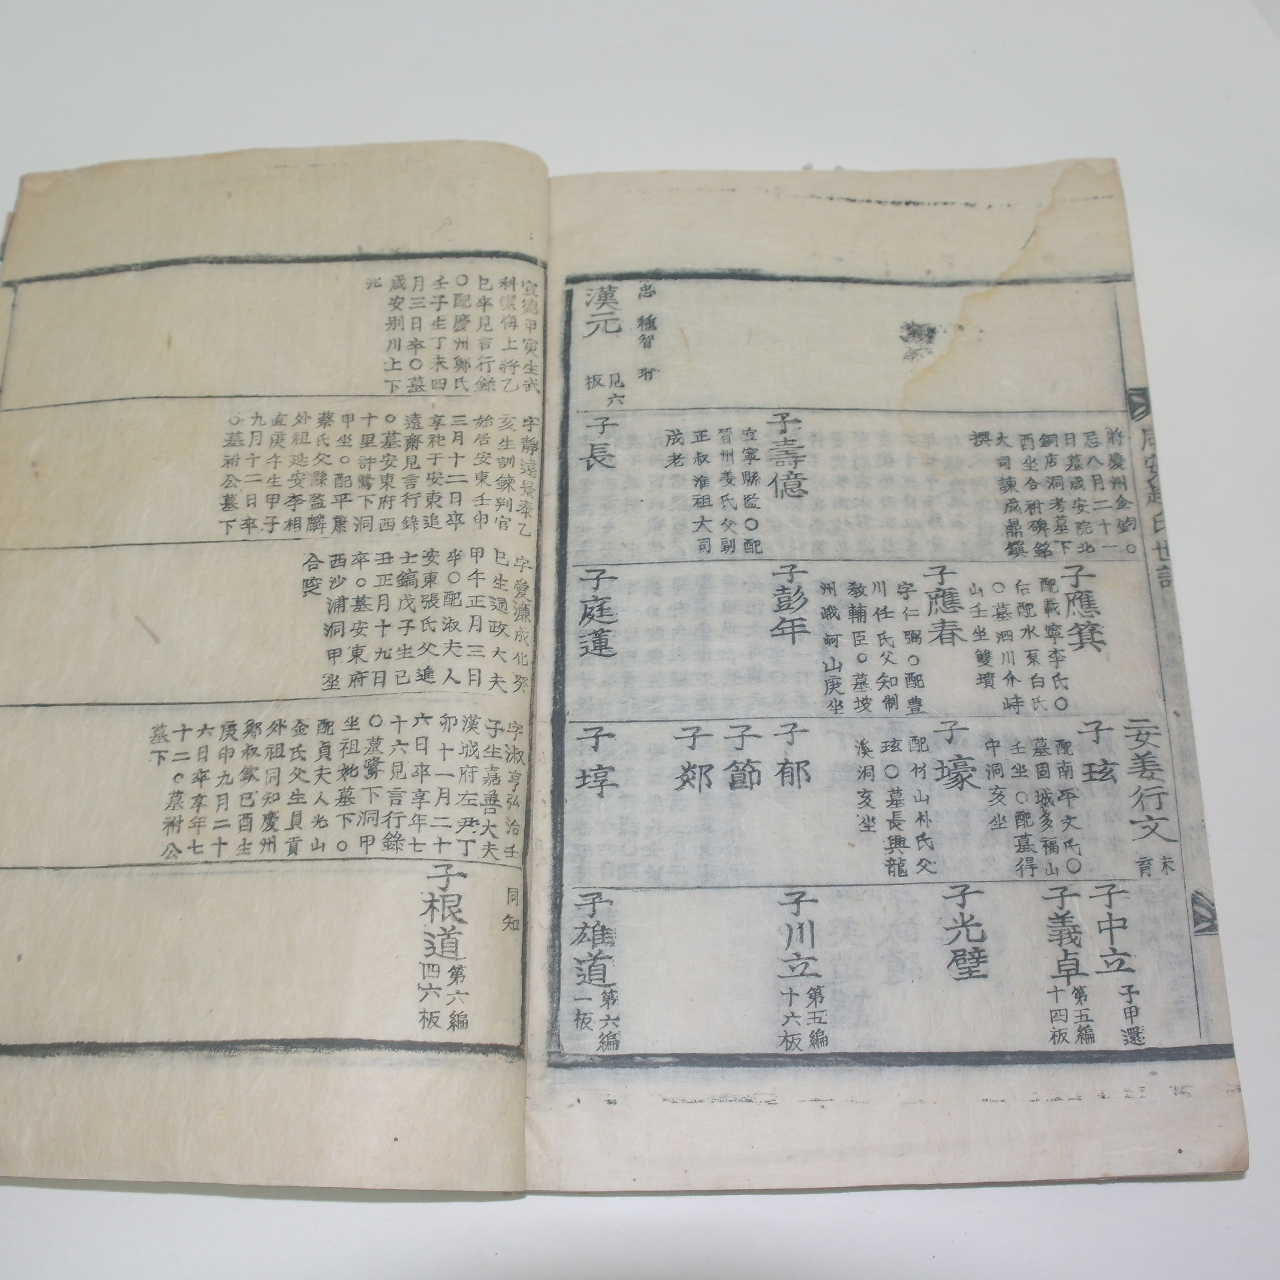 漢元
見六
板
將慶州金銣○
忌八月二十一
日墓咸安院北
銅店洞考墓下
酉坐合祔碑銘
大司諫成鼎鎭
撰
子壽億
宜寧縣監○配
晉州姜氏父副
正叔淮祖大司
成老
子長
子應箕
配載寧李氏○
后配水原白氏
○墓泗川介峙
山壬坐雙墳
子應春
字仁弼○配豊
川任氏父知制
敎輔臣○墓坡
州峨嵋山庚坐
子彭年
子庭蓮
安姜行文
未
育
子玹
配南平文氏○
墓固城多福山
壬坐○配墓得
中洞亥坐
子壕
配竹山朴氏父
玹○墓長興龍
溪洞亥坐
子郁
子節
子郯
子埻
子中立
子甲還
子義卓
第五編
十四板
子光璧
子川立
第五編
十六板
子雄道
第六編
一板
宣德甲寅生武
科禦侮上將乙
巳卒見言行錄
○配慶州鄭氏
壬子生丁未四
月三日卒○墓
咸安別川上下
兆
字靜遠景泰乙
亥生訓鍊判官
始居安東壬申
三月十二日卒
享祀于安東追
遠齋見言行錄
○墓安東府西
十里許鷺下洞
甲坐○配平康
蔡氏父縣監麟
外祖延安李相
直庚午生甲子
九月十二日卒
○墓祔公墓下
字愛濂成化癸
巳生通政大夫
甲午正月三日
卒○配淑夫人
安東張氏父進
士鎬戊子生己
丑正月十九日
卒○墓安東府
西沙浦洞甲坐
合窆
字淑亨弘治壬
子生嘉善大夫
漢城府左尹丁
卯十一月二十
六日卒享年七
十六見言行錄
○墓鷺下洞甲
坐祖妣墓下○
配貞夫人光山
金氏父生員貢
外祖同知慶州
鄭叔歛己酉生
庚申九月二十
六日卒享年七
十二○墓祔公
墓下
同知
子根道
第六編
四六板